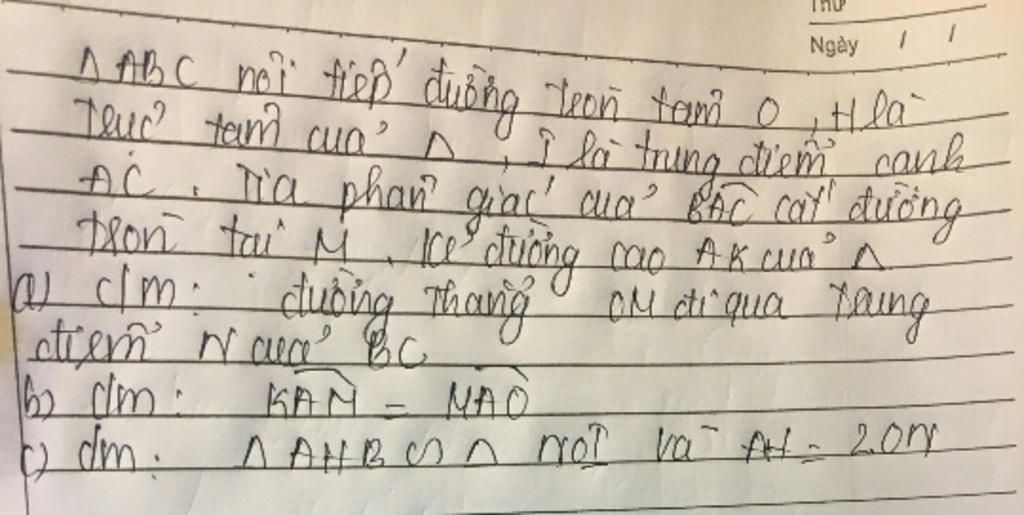 Thứ
Ngày / /
Δ ABC nội tiếp đường tròn tâm O, H là
trực tâm của Δ, I là trung điểm cạnh
AC. Tia phân giác của BAC cắt đường
tròn tại M. Kẻ đường cao AK của Δ
a) c/m: đường thẳng OM đi qua trung
điểm N của BC
b) c/m: KAM = MAO
c) c/m: Δ AHB ∽ Δ NOI và AH = 2.ON